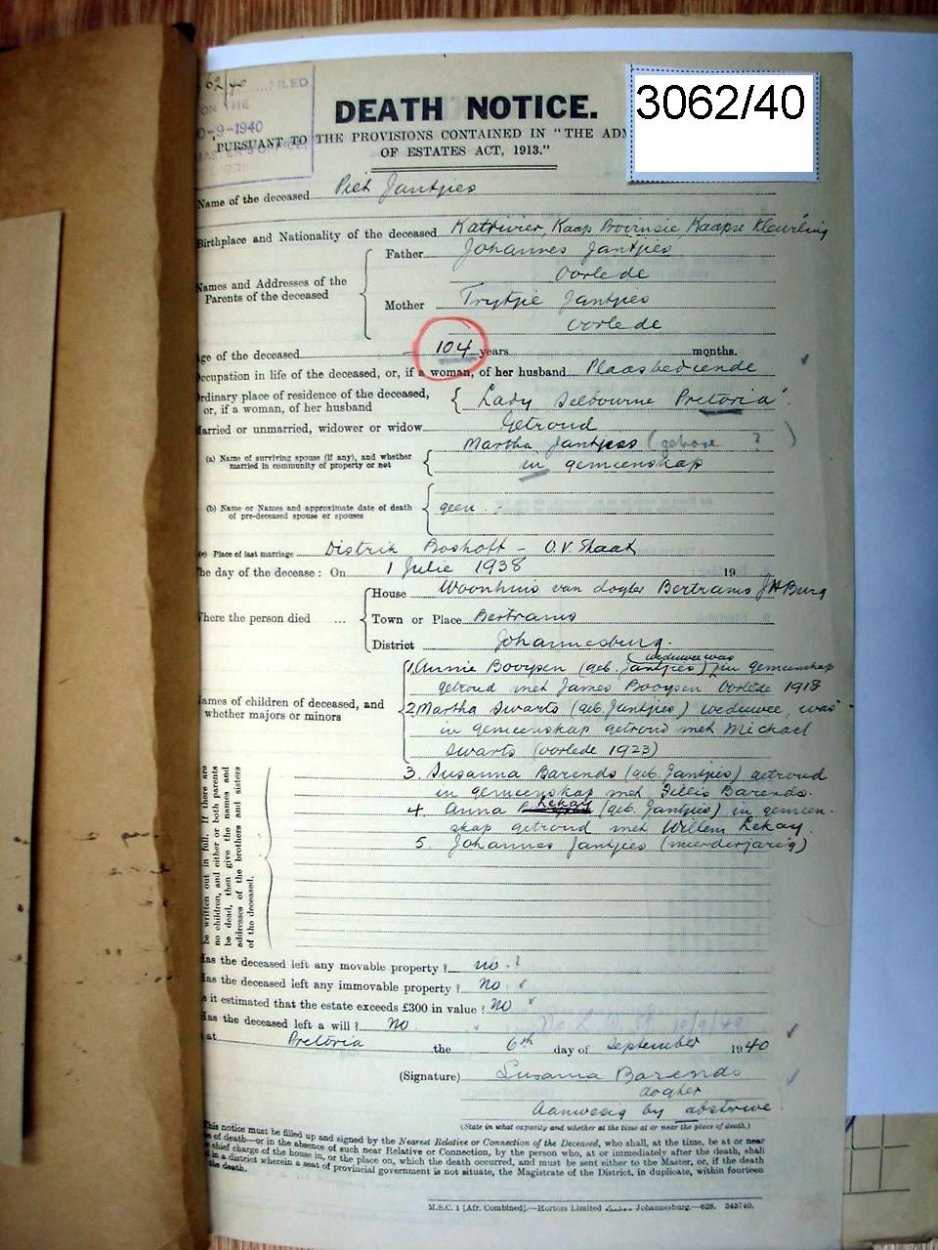 3062/40
62/40 FILED
ON THE
0-9-1940
DEATH NOTICE.
PURSUANT TO THE PROVISIONS CONTAINED IN "THE ADM
OF ESTATES ACT, 1913."
Name of the deceased Piet Jantjies
Birthplace and Nationality of the deceased Katrivier, Kaap Provinsie, Kaapse Kleurling
Names and Addresses of the Parents of the deceased
Father Johannes Jantjies
Oorlede
Mother Trytjie Jantjies
Oorlede
ge of the deceased 104 years months.
ccupation in life of the deceased, or, if a woman, of her husband Plaasbediende
rdinary place of residence of the deceased, or, if a woman, of her husband Lady Selbourne Pretoria
arried or unmarried, widower or widow Getroud
(a) Name of surviving spouse (if any), and whether married in community of property or not
Martha Jantjies (gebore ? )
in gemeenskap
(b) Name or Names and approximate date of death of pre-deceased spouse or spouses
geen
(c) Place of last marriage Distrik Boshoff - O.V. Staat
he day of the decease: On 1 Julie 1938 19
here the person died ...
House Woonhuis van dogter Bertrams JHBurg
Town or Place Bertrams
District Johannesburg.
ames of children of deceased, and whether majors or minors
weduwee was
1. Annie Booysen (geb. Jantjies) in gemeenskap
getroud met James Booysen Oorlede 1918
2 Martha Swarts (geb. Jantjies) weduwee, was
in gemeenskap getroud met Michael
Swarts (oorlede 1923)
3. Susanna Barends (geb. Jantjies) getroud
in gemeenskap met Gillis Barends.
4. Anna Lekay (geb. Jantjies) in gemeen-
skap getroud met Willem Lekay.
5 Johannes Jantjies (meerderjarig)
be written out in full. If there are
no children, and either or both parents
be dead, then give the names and
addresses of the brothers and sisters
of the deceased.
as the deceased left any movable property? no. ?
as the deceased left any immovable property? No.
s it estimated that the estate exceeds £300 in value? No
as the deceased left a will? No
10/9/40
at Pretoria the 6th day of September 1940
(Signature) Susanna Barends
dogter
Aanwesig by absterwe
(State in what capacity and whether at the time at or near the place of death.)
This notice must be filled up and signed by the Nearest Relative or Connection of the Deceased, who shall, at the time, be at or near
e of death—or in the absence of such near Relative or Connection, by the person who, at or immediately after the death, shall
chief charge of the house in, or the place on, which the death occurred, and must be sent either to the Master, or, if the death
in a district wherein a seat of provincial government is not situate, the Magistrate of the District, in duplicate, within fourteen
the death.
M.S.C. 1 [Afr. Combined].—Hortors Limited Johannesburg.—628. 345740.